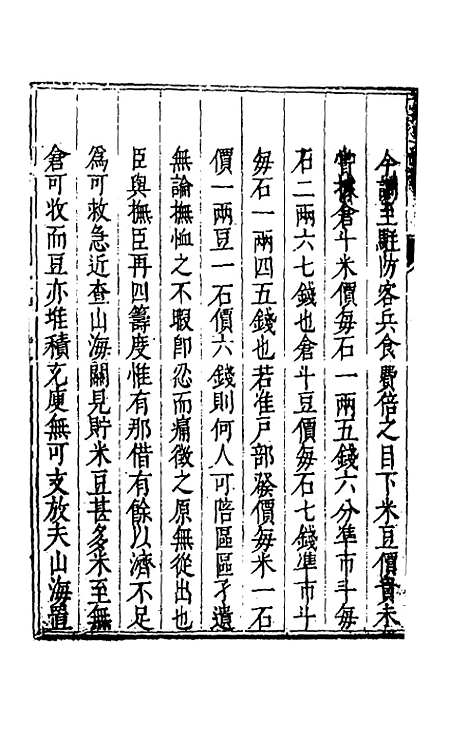 今調至駐防客兵食費倍之目下米豆價貴未
嘗據倉斗米價每石一兩五錢六分準市斗每
石二兩六七錢也倉斗豆價每石七錢準市斗
每石一兩四五錢也若准戶部發價每米一石
價一兩豆一石價六錢則何人可陪區區孑遺
無論撫恤之不暇卽忍而痛徵之原無從出也
臣與撫臣再四籌度惟有那借有餘以濟不足
爲可救急近查山海關見貯米豆甚多米至無
倉可收而豆亦堆積充庾無可支放夫山海置